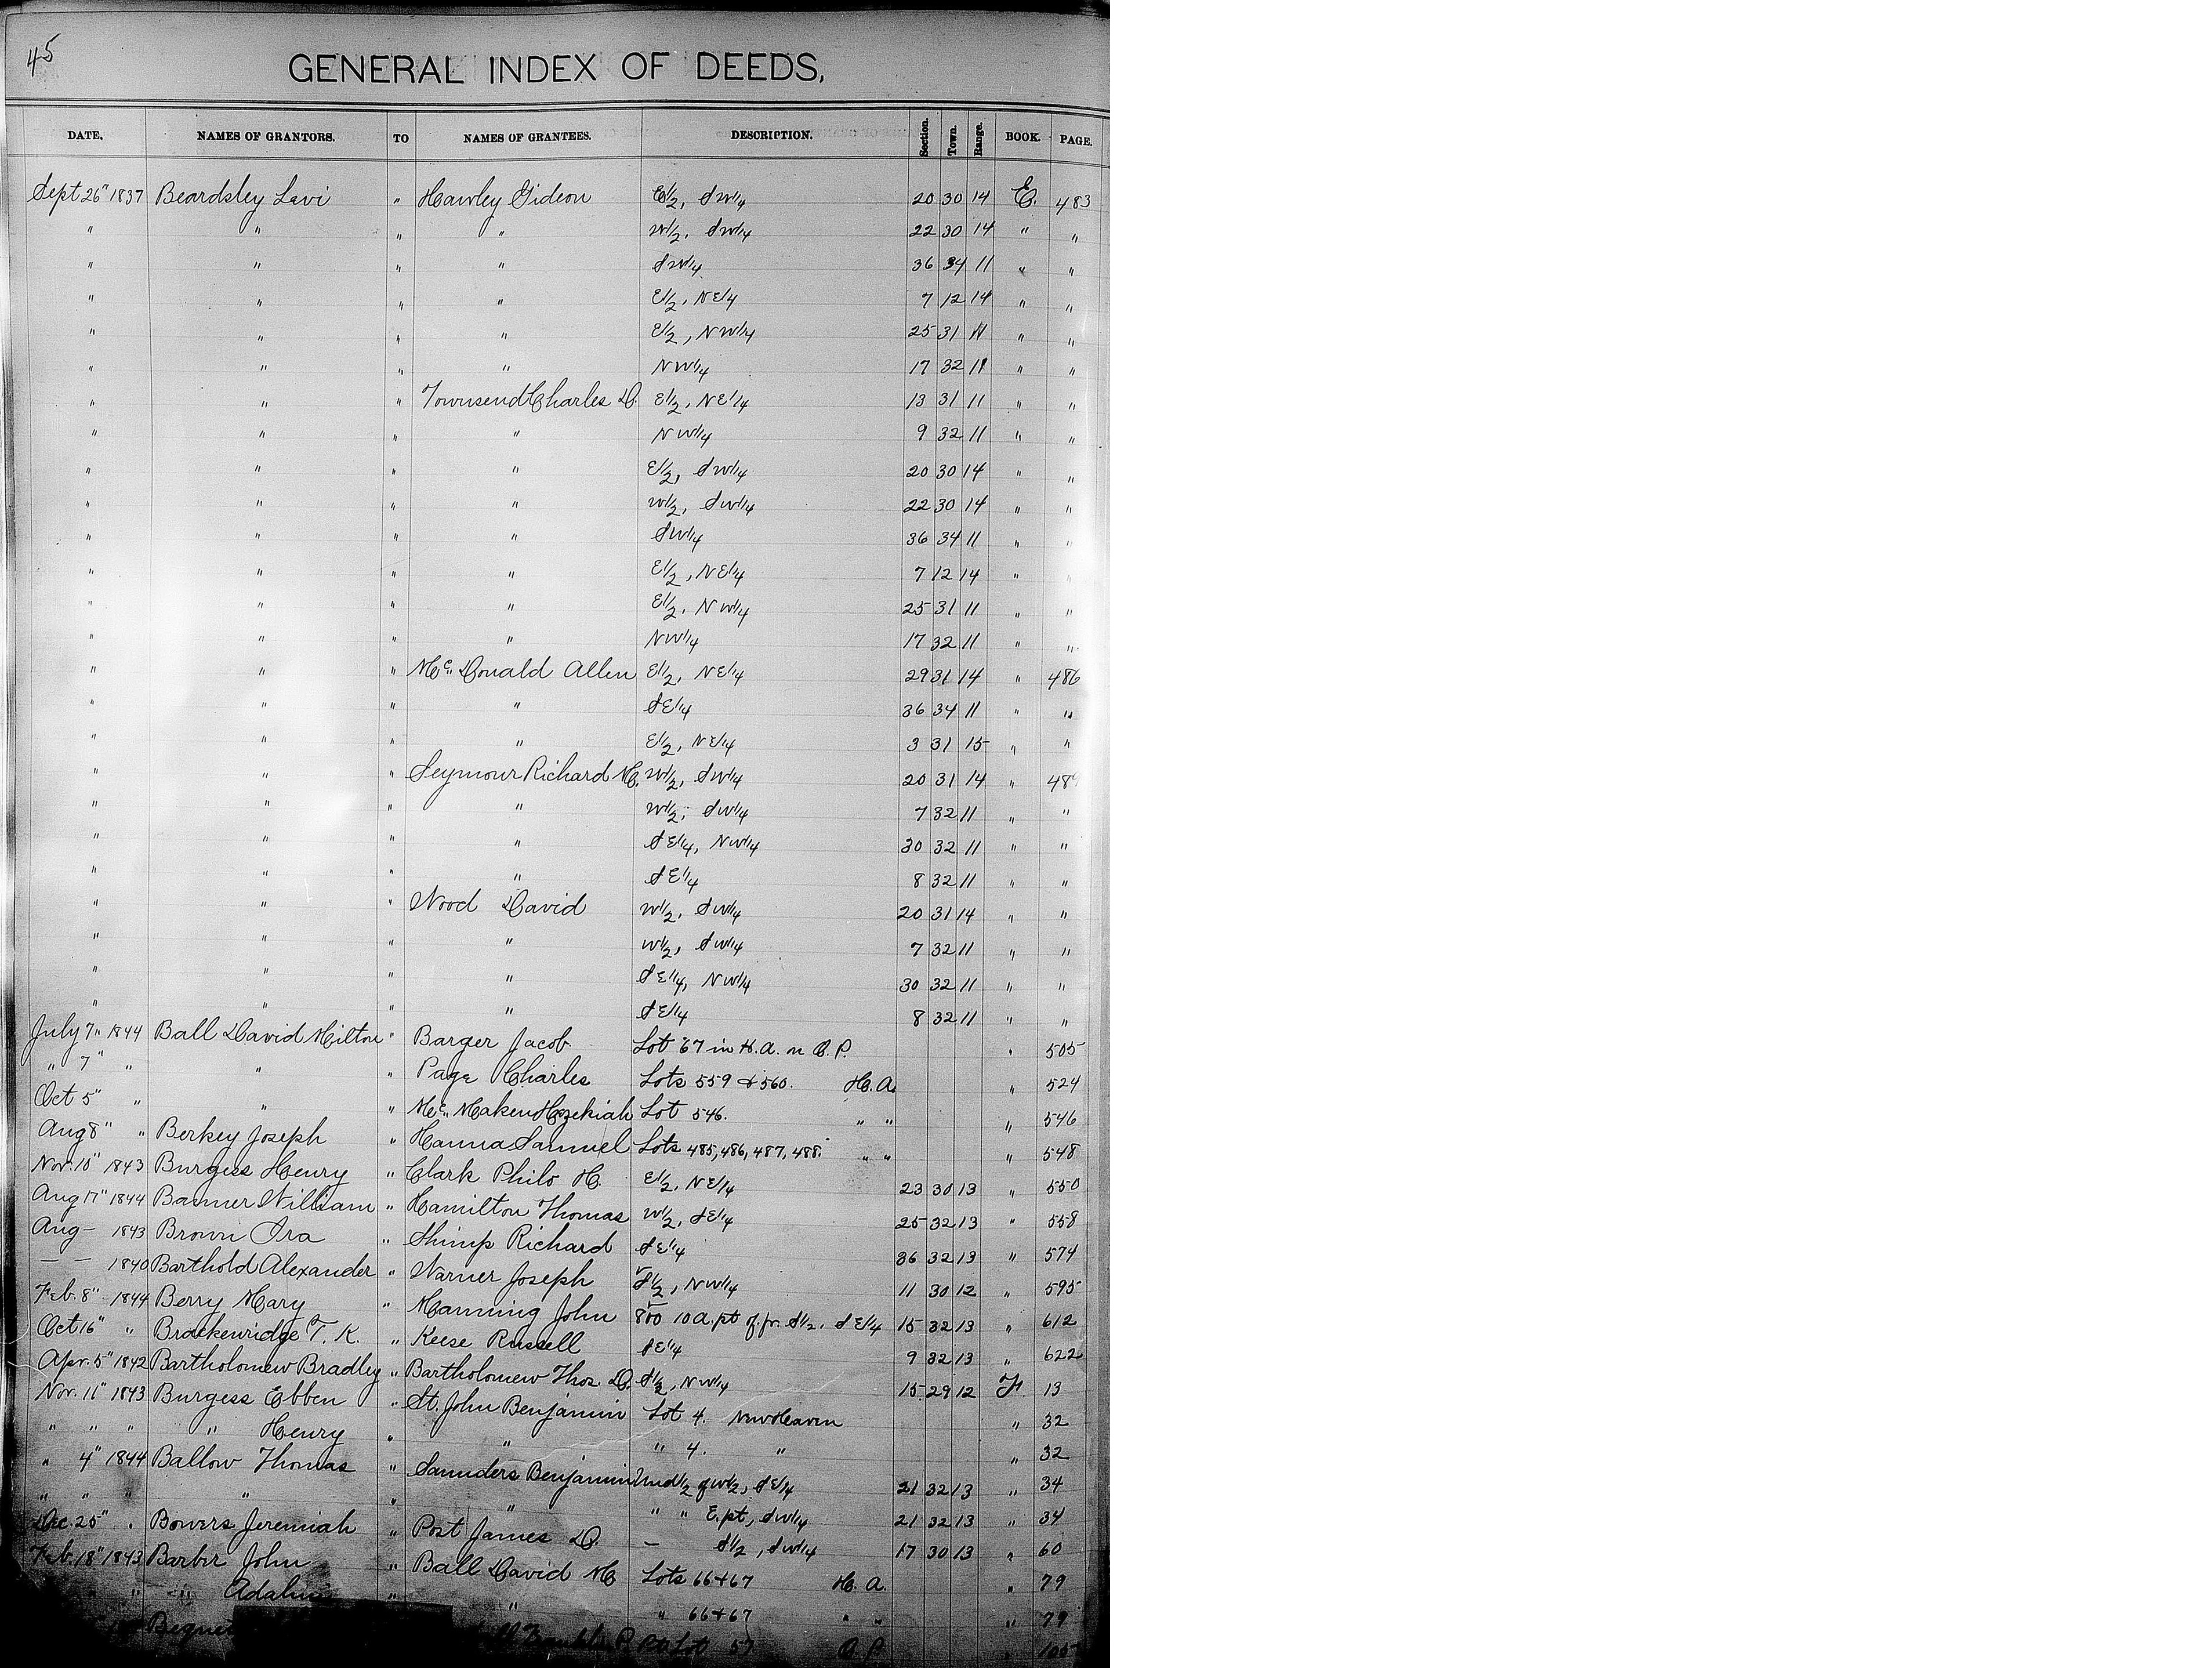 45
GENERAL INDEX OF DEEDS,
DATE. NAMES OF GRANTORS. TO NAMES OF GRANTEES. DESCRIPTION. Section. Town. Range. BOOK. PAGE.
Sept 26" 1837 Beardsley Levi " Hawley Gideon E1/2, SW1/4 20 30 14 E. 483
" " " " W1/2, SW1/4 22 30 14 " "
" " " " SW1/4 36 34 11 " "
" " " " E1/2, NE1/4 7 12 14 " "
" " " " E1/2, NW1/4 25 31 11 " "
" " " " NW1/4 17 32 11 " "
" " " Townsend Charles D. E1/2, NE1/4 13 31 11 " "
" " " " NW1/4 9 32 11 " "
" " " " E1/2, SW1/4 20 30 14 " "
" " " " W1/2, SW1/4 22 30 14 " "
" " " " SW1/4 36 34 11 " "
" " " " E1/2, NE1/4 7 12 14 " "
" " " " E1/2, NW1/4 25 31 11 " "
" " " " NW1/4 17 32 11 " "
" " " Mc Donald Allen E1/2, NE1/4 29 31 14 " 486
" " " " SE1/4 36 34 11 " "
" " " " E1/2, NE1/4 3 31 15 " "
" " " Seymour Richard M. W1/2, SW1/4 20 31 14 "
" " " " W1/2, SW1/4 7 32 11 " "
" " " " SE1/4, NW1/4 30 32 11 " "
" " " " SE1/4 8 32 11 " "
" " " Wood David W1/2, SW1/4 20 31 14 " "
" " " " W1/2, SW1/4 7 32 11 " "
" " " " SE1/4, NW1/4 30 32 11 " "
" " " " SE1/4 8 32 11 " "
July 7" 1844 Ball David Milton " Barger Jacob Lot 67 in H.A. n O.P. " 505
" 7" " " " Page Charles Lots 559 & 560. H.A. " 524
Oct 5" " " " Mc Maken Hezekiah Lot 546. " " " 546
Aug 8" " Berkey Joseph " Hanna Samuel Lots 485, 486, 487, 488. " " " 548
Nov. 10" 1843 Burgess Henry " Clark Philo H. E1/2, NE1/4 23 30 13 " 550
Aug 17" 1844 Banner William " Hamilton Thomas W1/2, SE1/4 25 32 13 " 558
Aug - 1843 Brown Ira " Shimp Richard SE1/4 36 32 13 " 574
— — 1840 Barthold Alexander " Warner Joseph S1/2, NW1/4 11 30 12 " 595
Feb. 8" 1844 Berry Mary " Manning John 10 a. pt of fr. S1/2, SE1/4 15 32 13 " 612
Oct 16" " Brackenridge T. K. " Keese Russell SE1/4 9 32 13 " 622
Apr. 5" 1842 Bartholomew Bradley " Bartholomew Thos. D. S1/2, NW1/4 15 29 12 F. 13
Nov. 11" 1843 Burgess Ebben " St. John Benjamin Lot 4. New Heaven " 32
" " " " Henry " " " 4. " " 32
" 4" 1844 Ballow Thomas " Saunders Benjamin Und1/2 of W1/2, SE1/4 21 32 13 " 34
" " " " " " " " E. pt, SW1/4 21 32 13 " 34
Dec. 25" " Bowers Jeremiah " Post James D. — S1/2, SW1/4 17 30 13 " 60
Feb. 18" 1843 Barber John " Ball David M Lots 66+67 H. A. " 79
" " " " " " 66+67 " " " 79
Lot 57 O. P. 105